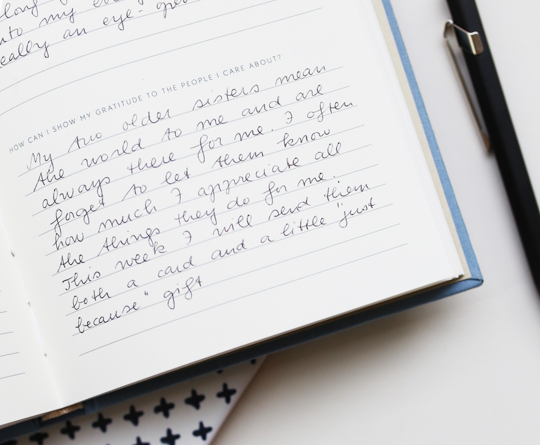 long
nto my eve
eally an eye-
HOW CAN I SHOW MY GRATITUDE TO THE PEOPLE I CARE ABOUT?
My two older sisters mean
the world to me and are
always there for me. I often
forget to let them know
how much I appreciate all
the things they do for me.
This week I will send them
both a card and a little "just
because" gift